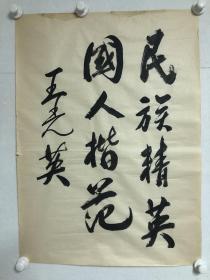 民族精英
國人楷范
王光英